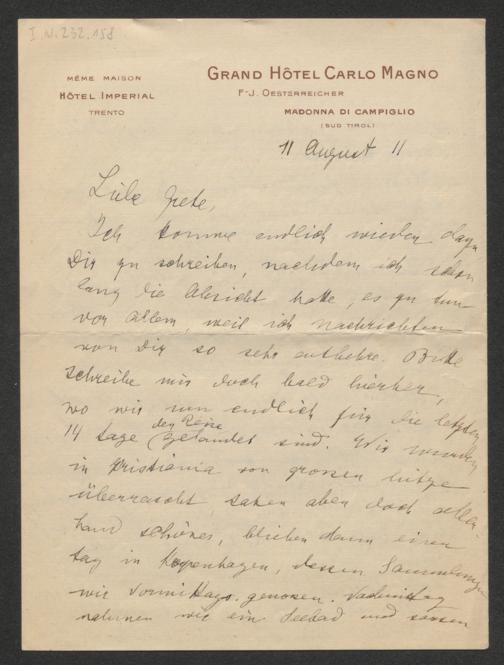 I.N. 232.158
MÊME MAISON
HÔTEL IMPERIAL
TRENTO
GRAND HÔTEL CARLO MAGNO
F-J. OESTERREICHER
MADONNA DI CAMPIGLIO
(SUD TIROL)
11 August 11
Liebe Grete,
Ich komme endlich wieder dazu
Dir zu schreiben, nachdem ich schon
lang die Absicht hatte, es zu tun
vor allem, weil ich Nachrichten
von Dir so sehr entbehre. Bitte
schreibe mir doch bald hierher,
wo wir nun endlich für die letzten
14 Tage der Reise gelandet sind. Wir wurden
in Kristiania von grosser Hitze
überrascht, sahen aber doch aller-
hand schönes, blieben dann einen
Tag in Kopenhagen, dessen Sammlungen
wir Vormittags genossen. Nachmittag
nahmen wir ein Seebad und